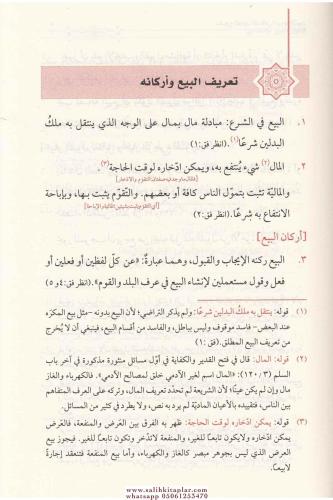 تعريف البيع وأركانه
١. البيع في الشرع: مبادلة مال بمال على الوجه الذي ينتقل به ملكُ
البدلين شرعًا(١). (انظر فق:١)
٢. المال(٢) شيء يُنتفع به، ويمكن ادّخاره لوقت الحاجة(٣)
والماليّة تثبت بتموّل الناس كافة أو بعضهم. والتقوّم يثبت بها، وبإباحة
الانتفاع به شرعًا. (انظر فق:٢)
[أركان البيع]
٣. البيع ركنه الإيجاب والقبول، وهما عبارة: «عن كلّ لفظين أو فعلين أو
فعل وقول مستعملين لإنشاء البيع في عرف البلد والقوم». (انظر فق:٤و٥)
(١) قوله: ينتقل به ملكُ البدلين شرعًا: ولم يذكر التراضي؛ لأن البيع بدونه -مثل بيع المكرَه
عند البعض- فاسد موقوف وليس بباطل، والفاسد من أقسام البيع، فينبغي أن لا يُخرج
من تعريف البيع المطلق. (فق:١)
(٢) قوله: المال: قال في فتح القدير والكفاية في أوّل مسائل منثورة مذكورة في آخر باب
السلم (١٢٠/٣): «المال اسم لغير الآدمي خلق لمصالح الآدمي». فالكهرباء والغاز
مال وإن لم يكن عينًا؛ لأن الشريعة لم تحدّد تعريف المال، وتركه على العرف المتفاهم
بين الناس، فتقييده بالأعيان الماديّة لم يرد به نص، ولا يطرد في كثير من المسائل.
(٣) قوله: يمكن ادّخاره لوقت الحاجة: ظهر به الفرق بين العرض والمنفعة، فالعَرَض
يمكن ادّخاره ولايكون تابعًا للغير، والمنفعة لاتدّخر وتكون تابعًا للغير. فيجوز بيع
العرض الذي ليس بجوهر مبصر كالغاز والكهرباء، وأما بيع المنفعة فتنعقد إجارةً
لابيعًا.
www.salihkitaplar.com
whatsapp 05061253470